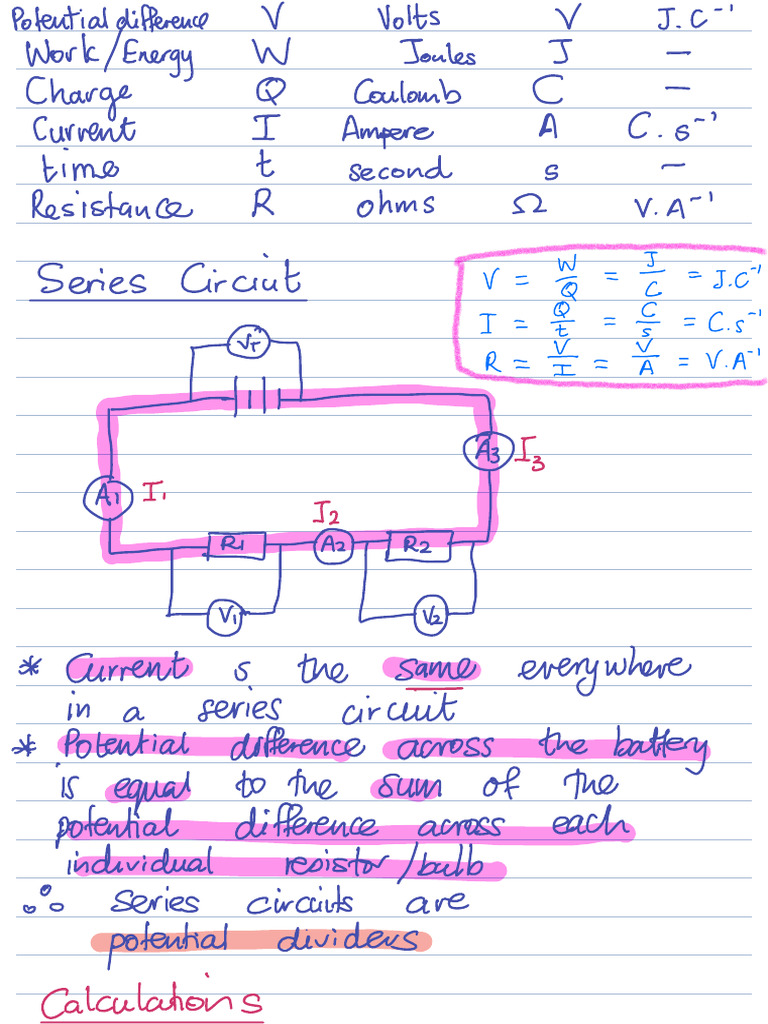 Potential difference V Volts V J.C⁻¹
Work/Energy W Joules J —
Charge Q Coulomb C —
Current I Ampere A C.s⁻¹
time t second s —
Resistance R ohms Ω V.A⁻¹
Series Circiut
V = W/Q = J/C = J.C⁻¹
I = Q/t = C/s = C.s⁻¹
R = V/I = V/A = V.A⁻¹
VT
A3 I3
A1 I1
I2
R1 A2 R2
V1 V2
* Current s the same everywhere
in a series circuit
* Potential difference across the battery
is equal to the sum of the
potential difference across each
individual resistor/bulb
∴ series circuits are
potential dividers
Calculations